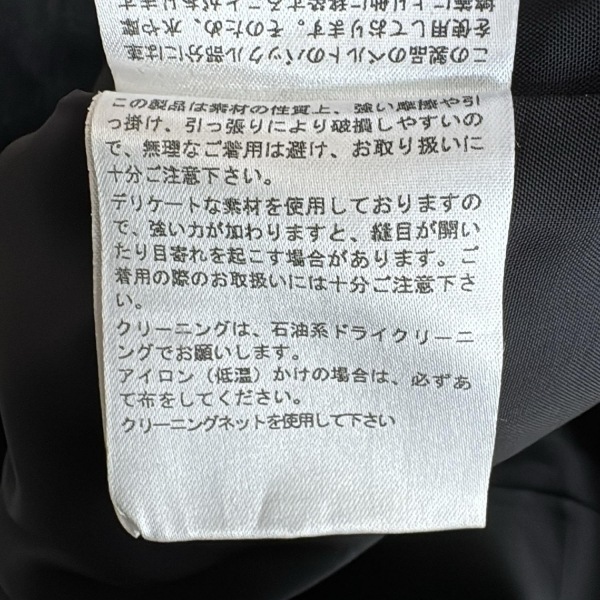 この製品のベルトのバックル部分には革
を使用しております。そのため、水や摩
この製品は素材の性質上、強い摩擦や引
っ掛け、引っ張りにより破損しやすいの
で、無理なご着用は避け、お取り扱いに
十分ご注意下さい。
デリケートな素材を使用しておりますの
で、強い力が加わりますと、縫目が開い
たり目寄れを起こす場合があります。ご
着用の際のお取扱いには十分ご注意下さ
い。
クリーニングは、石油系ドライクリーニ
ングでお願いします。
アイロン（低温）かけの場合は、必ずあ
て布をしてください。
クリーニングネットを使用して下さい